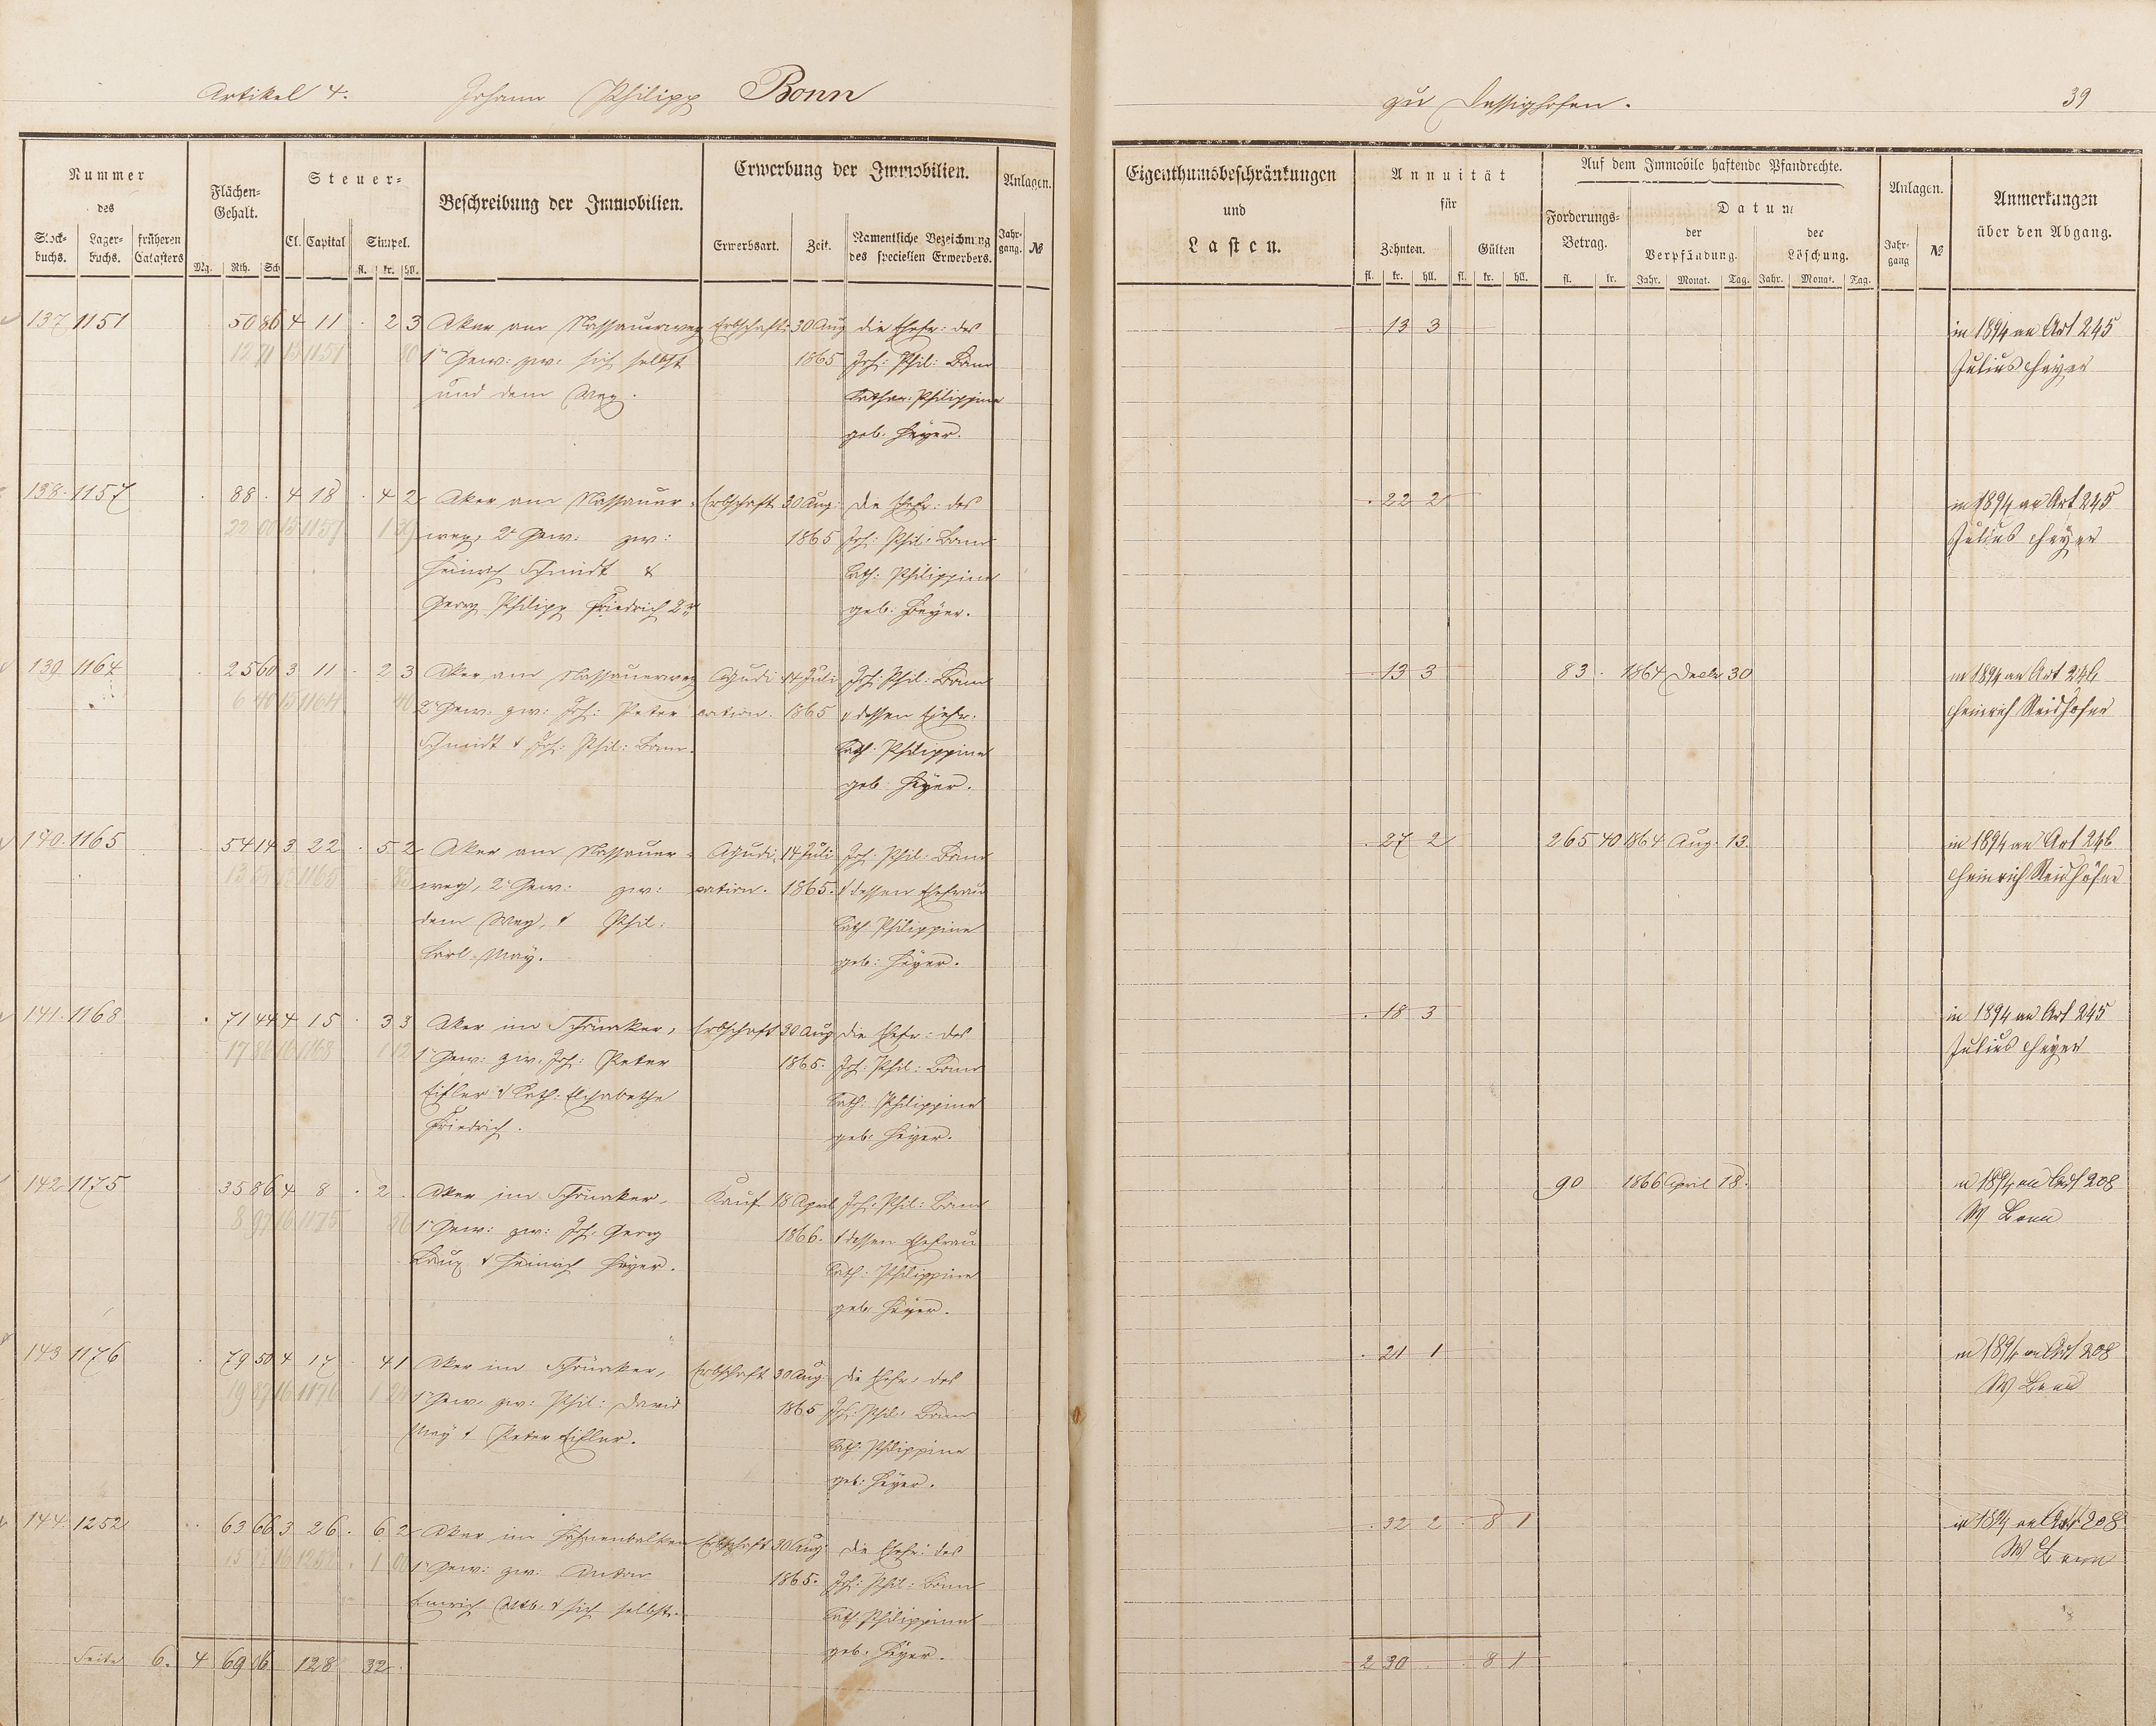 Artikel 4. Johann Philipp Bonn
zu Dessighofen. 39
Nummer
des
Stock-buchs. Lager-buchs. früheren Catasters
Flächen-Gehalt.
Mg. Rth. Sch
Steuer-
Cl. Capital Simpel.
fl. kr. hll.
Beschreibung der Immobilien.
Erwerbung der Immobilien.
Erwerbsart. Zeit. Namentliche Bezeichnung des speciellen Erwerbers.
Anlagen.
Jahr-gang. №
Eigenthumsbeschränkungen
und
Lasten.
Annuität
für
Zehnten. Gülten
fl. kr. hll. fl. kr. hll.
Auf dem Immobile haftende Pfandrechte.
Forderungs-Betrag.
fl. kr.
Datum
der Verpfändung. der Löschung.
Jahr. Monat. Tag. Jahr. Monat. Tag.
Anlagen.
Jahr-gang №
Anmerkungen
über den Abgang.
137 1151 50 86 4 11 . 2 3 Aker am Nassauerweg Erbschaft 30 Aug die Ehefr: des 13 3 in 1894 an Art 245
12 71 15 1151 80 1r Gew: zw: sich selbst 1865 Joh: Phil: Bonn Julius Heyer
und dem Weg. Cathar. Philippine
geb. Heyer.
138. 1157 . 88 . 4 18 . 4 2 Aker am Nassauer- Erbschaft 30 Aug: die Ehefr: des . 22 2 in 1894 an Art 245
22 00 15 1157 1 weg, 2r Gew: zw: 1865 Joh: Phil: Bonn Julius Heyer
Heinrich Schmidt & Cath: Philippine
Georg Philipp Friedrich 2r geb: Heyer.
139 1164 . 25 60 3 11 . 2 3 Aker am Nassauerweg Ajudi- 14 Juli Joh: Phil: Bonn 13 3 83 . 1864 Decbr 30 in 1894 an Art 246
6 40 15 1164 40 2r Gew. zw: Joh: Peter cation. 1865 & dessen Ehefr. Heinrich Neidhöfer
Schmidt & Joh: Phil: Bonn. Cath: Philippine
geb: Heyer.
140. 1165 . 54 14 3 22 . 5 2 Aker am Nassauer- Ajudi- 14 Juli Joh: Phil: Bonn . 27 2 265 40 1864 Aug. 13. in 1894 an Art 246
13 1165 85 weg, 2r Gew: zw: cation. 1865. & dessen Ehefrau Heinrich Neidhöfer
dem Weg, & Phil: Cath: Philippine
Carl May. geb: Heyer.
141. 1168 . 71 44 4 15 . 3 3 Aker im Erbschaft 30 Aug die Ehefr: des . 18 3 in 1894 an Art 245
17 86 16 1168 1 12 1r Gew: zw: Joh: Peter 1865. Joh: Phil: Bonn Julius Heyer
Eisler & Cath: Elisabethe Cath: Philippine
Friedrich. geb: Heyer.
142 1175 . 35 86 4 8 . 2 . Aker im Kauf 18 April Joh: Phil: Bonn 90 1866 April 18. in 1894 an Art 208
8 97 16 1175 56 1r Gew: zw: Joh: Georg 1866. & dessen Ehefrau W Bonn
& Heinrich Heyer. Cath: Philippine
geb: Heyer.
143 1176 . 79 50 4 17 . 4 1 Aker im Erbschaft 30 Aug. die Ehefr: des . 21 1 in 1894 an Art 208
19 87 16 1176 1 1r Gew: zw: Phil: David 1865 Joh: Phil: Bonn W Bonn
May & Peter Eisler. Cath: Philippine
geb: Heyer.
144. 1252 . 63 66 3 26 . 6 2 Aker im Erbschaft 30 Aug. die Ehefr: des . 32 2 . 8 1 in 1894 an Art 208
15 16 1252 . 1 00 1r Gew: zw: Anton 1865. Joh: Phil: Bonn W Bonn
& sich selbst. Cath: Philippine
geb. Heyer.
Seite 6. 4 69 06 128 32 . 2 30 . . 8 1